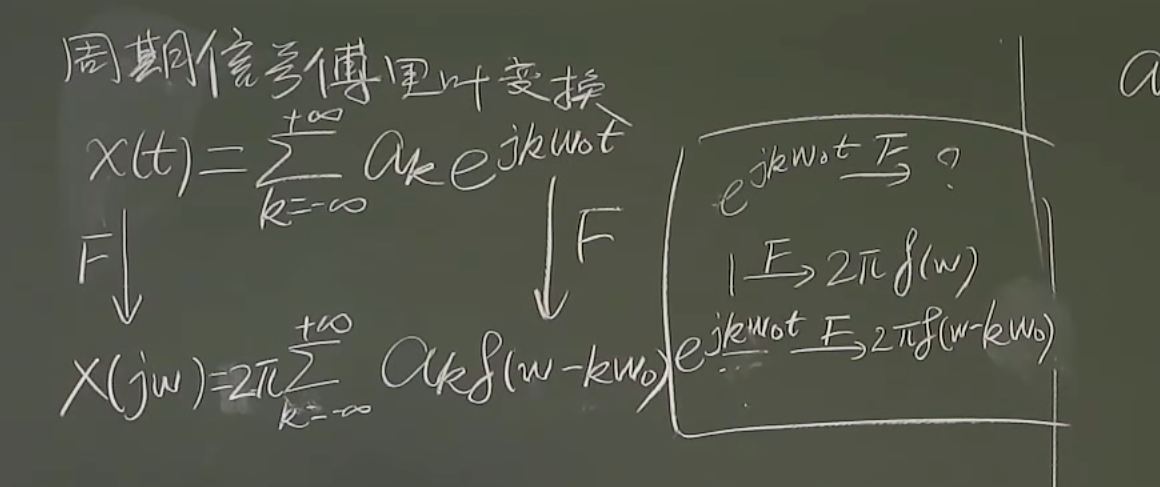 周期信号傅里叶变换
x(t)=∑_{k=-∞}^{+∞} a_k e^{jkw₀t}
F↓ ↓F
X(jw)=2π∑_{k=-∞}^{+∞} a_k δ(w-kw₀)
e^{jkw₀t} \xrightarrow{F} ?
1 \xrightarrow{F} 2πδ(w)
e^{jkw₀t} \xrightarrow{F} 2πδ(w-kw₀)
a